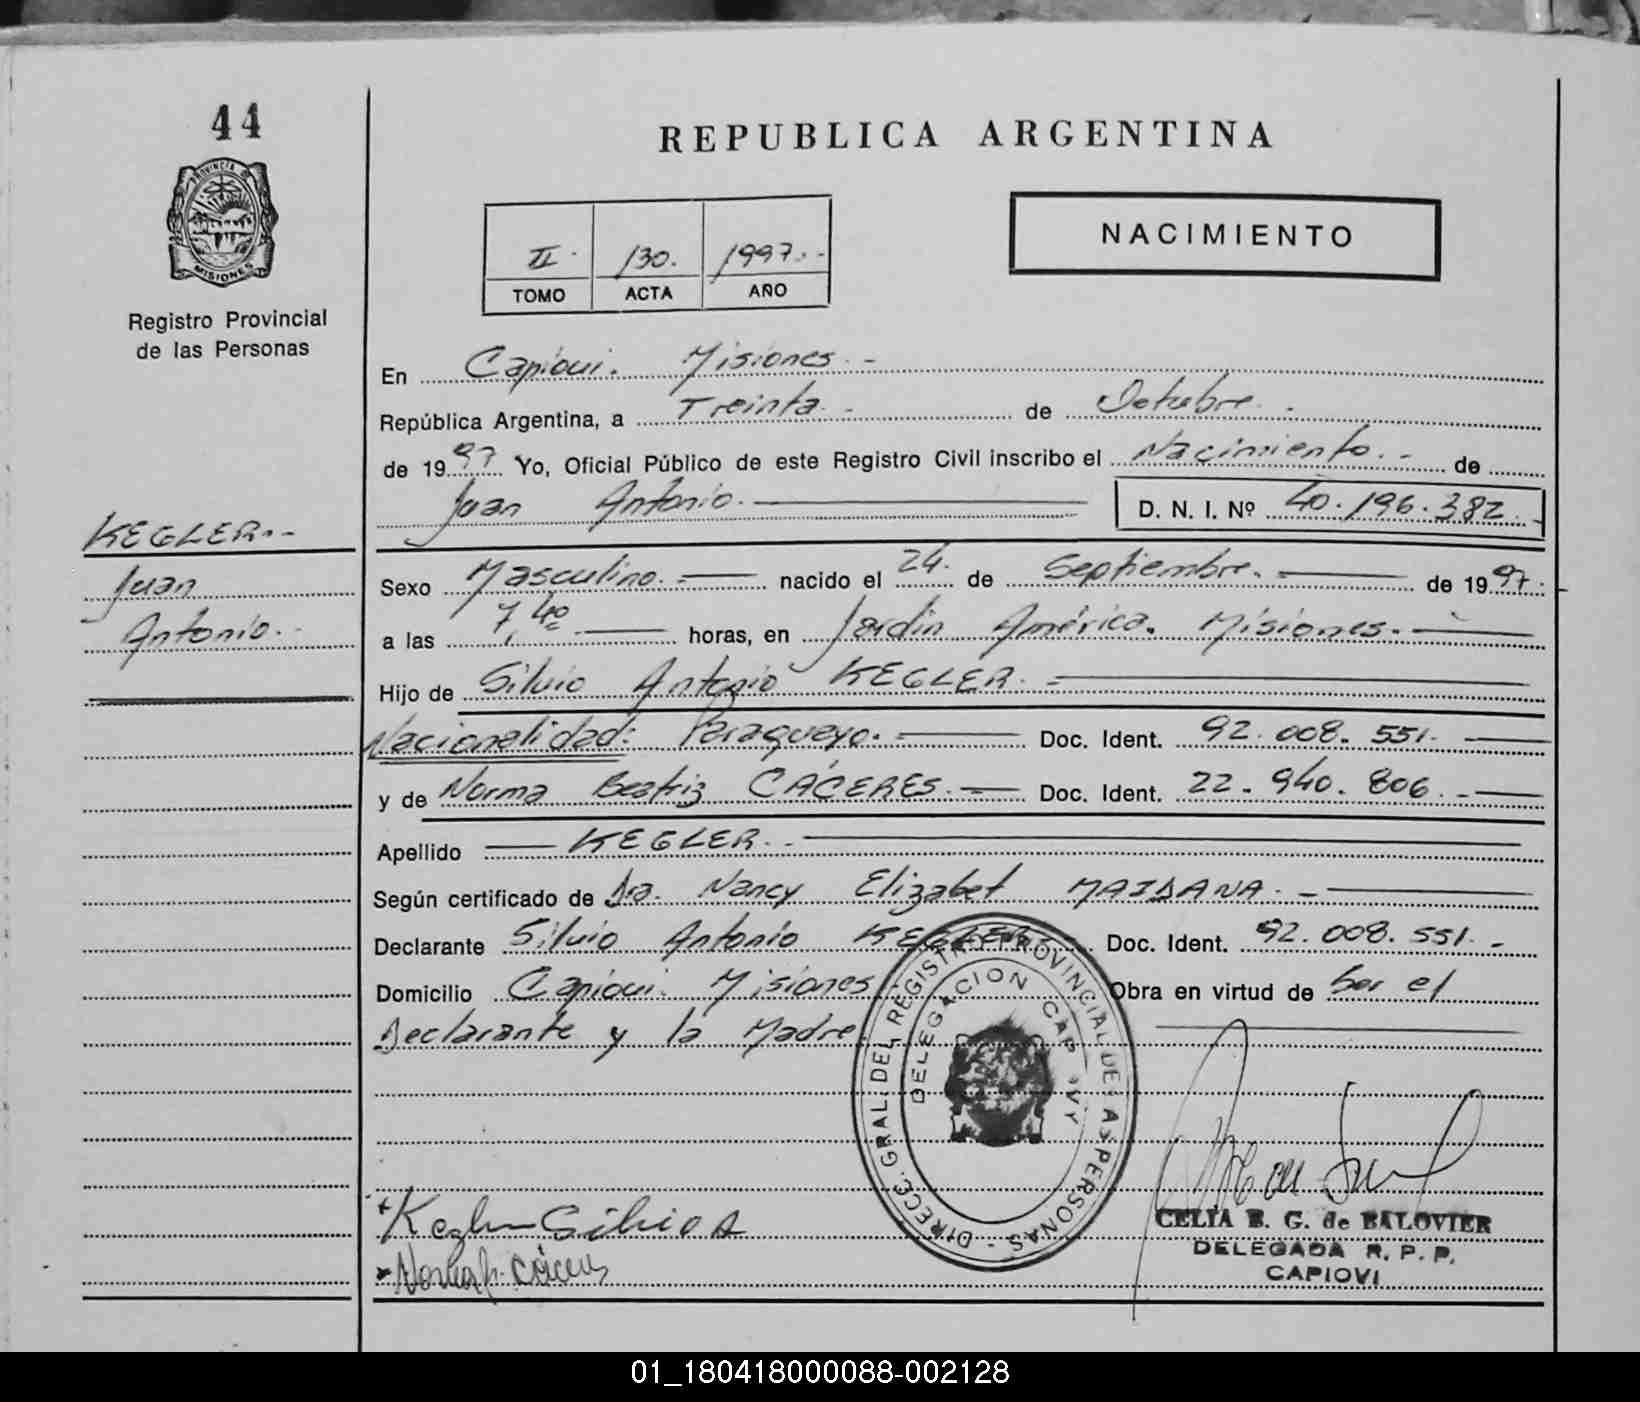 44
PROVINCIA DE
MISIONES
Registro Provincial
de las Personas
REPUBLICA ARGENTINA
II. 130. 1997.-
TOMO ACTA AÑO
NACIMIENTO
En Capioui. Misiones.-
República Argentina, a Treinta.- de Octubre.
de 1997 Yo, Oficial Público de este Registro Civil inscribo el Nacimiento.- de
Juan Antonio. D. N. I. Nº 40.196.382.-
KEGLER.-
Juan
Antonio.-
Sexo Masculino.- nacido el 24. de Septiembre. de 1997.
a las 7,40 horas, en Jardín América. Misiones.-
Hijo de Silvio Antonio KEGLER.
Nacionalidad: Paraguayo. Doc. Ident. 92.008.551.
y de Norma Beatriz CÁCERES.- Doc. Ident. 22.940.806.-
Apellido KEGLER.-
Según certificado de Dra. Nancy Elizabet MAIDANA.-
Declarante Silvio Antonio KEGLER Doc. Ident. 92.008.551.-
Domicilio Capioui. Misiones Obra en virtud de Ser el
Declarante y la Madre
DIRECC. GRAL. DEL REGISTRO PROVINCIAL DE LAS PERSONAS -
DELEGACION CAPIOVY
Kegler Silvio A
Norma B. Cáceres
CELIA B. G. de BALOVIER
DELEGADA R. P. P.
CAPIOVI
01_180418000088-002128